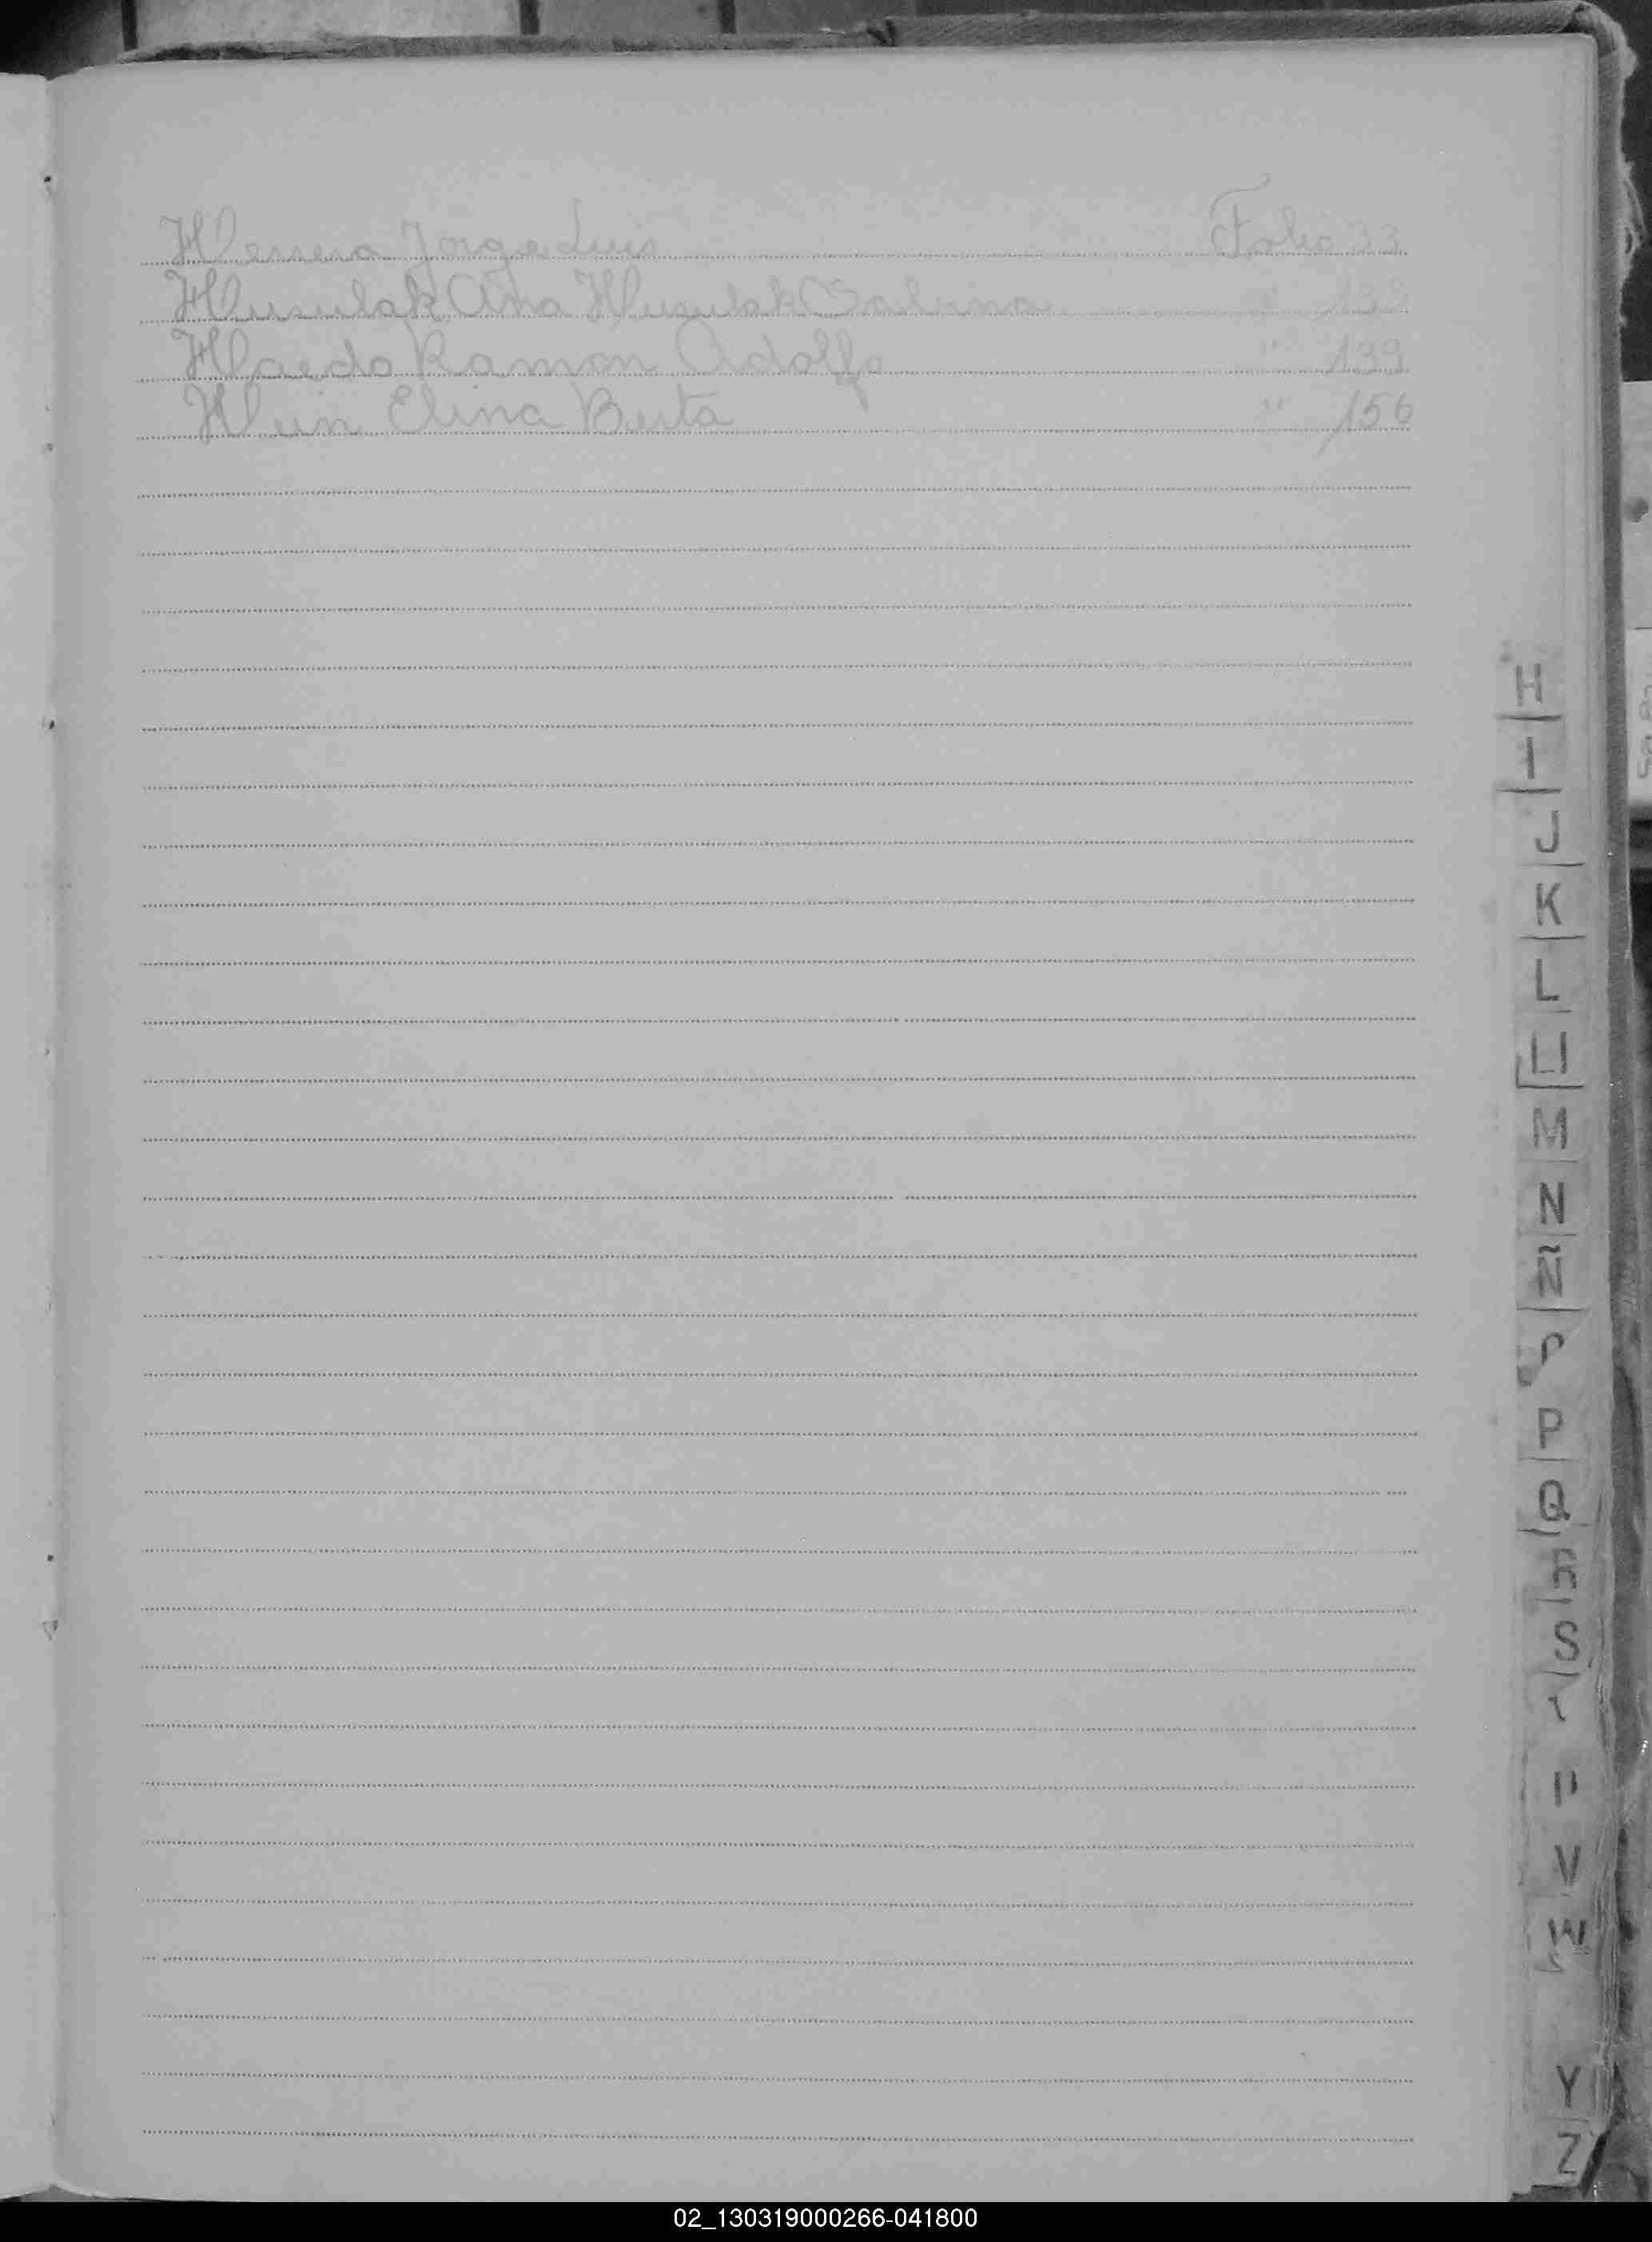 Herrera Jorge Luis Folio 33
Huzulak Ana Huzulak Catalina " 132
Haedo Ramon Adolfo " 139
Hein Elina Berta " 156
H
I
J
K
L
LL
M
N
Ñ
P
Q
R
S
V
W
Y
Z
02_130319000266-041800